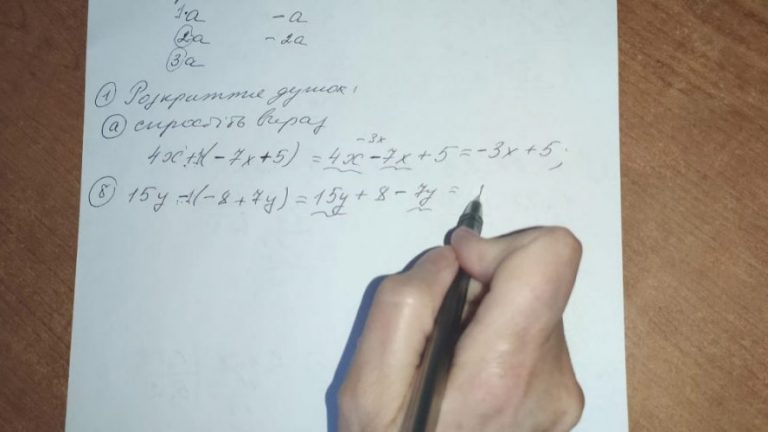 1·a -a
2a -2a
3a
1 Розкриття дужок:
а спростіть вираз
-3x
4x+1(-7x+5) = 4x-7x+5 = -3x+5;
б 15y-1(-8+7y) = 15y+8-7y =